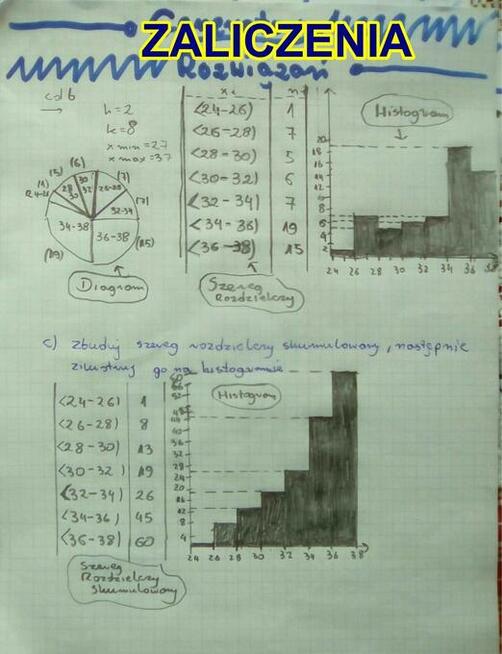 ZALICZENIA
Rozwiązań
cd b
h=2
k=8
x min = 27
x max = 37
xi n
<24-26) 1
<26-28) 7
<28-30) 5
<30-32) 6
<32-34) 7
<34-36) 19
<36-38) 15
Histogram
20
18
16
14
12
10
8
6
24 26 28 30 32 34 36 38
(5) (6) (7)
(1)
28 30
30 32
32-34
(7)
34-38
36-38
(15)
(19)
Diagram
Szereg
Rozdzielczy
c) zbuduj szereg rozdzielczy skumulowany, następnie
zilustruj go na histogramie
<24-26) 1
<26-28) 8
<28-30) 13
<30-32) 19
<32-34) 26
<34-36) 45
<36-38) 60
Histogram
60
48
44
40
36
32
28
24
20
16
12
8
4
24 26 28 30 32 34 36 38
Szereg
Rozdzielczy
skumulowany